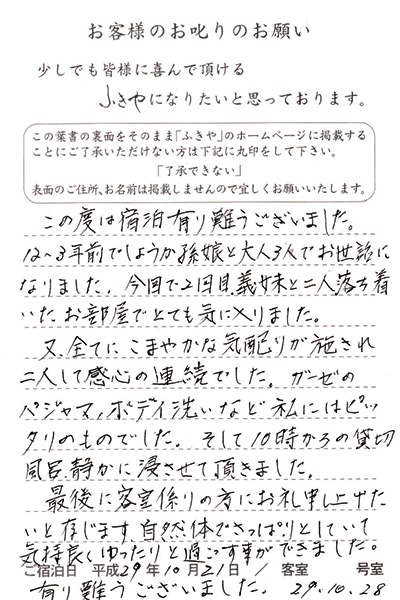 お客様のお叱りのお願い
少しでも皆様に喜んで頂ける
ふきやになりたいと思っております。
この葉書の裏面をそのまま「ふきや」のホームページに掲載する
ことにご了承いただけない方は下記に丸印をして下さい。
「了承できない」
表面のご住所、お名前は掲載しませんので宜しくお願いいたします。
この度は宿泊有り難うございました。
12~3年前でしょうか孫娘と大人3人でお世話に
なりました。今回で2回目義妹と二人落ち着
いたお部屋でとても気に入りました。
又、全てにこまやかな気配りが施され
二人して感心の連続でした。ガーゼの
パジャマ、ボディ洗いなど私にはピッ
タリのものでした。そして10時からの貸切
風呂静かに浸させて頂きました。
最後に客室係りの方にお礼申し上げた
いと存じます。自然体でさっぱりとしていて
気持良くゆったりと過ごす事ができました。
ご宿泊日 平成29年10月21日 / 客室 号室
有り難うございました。 29.10.28